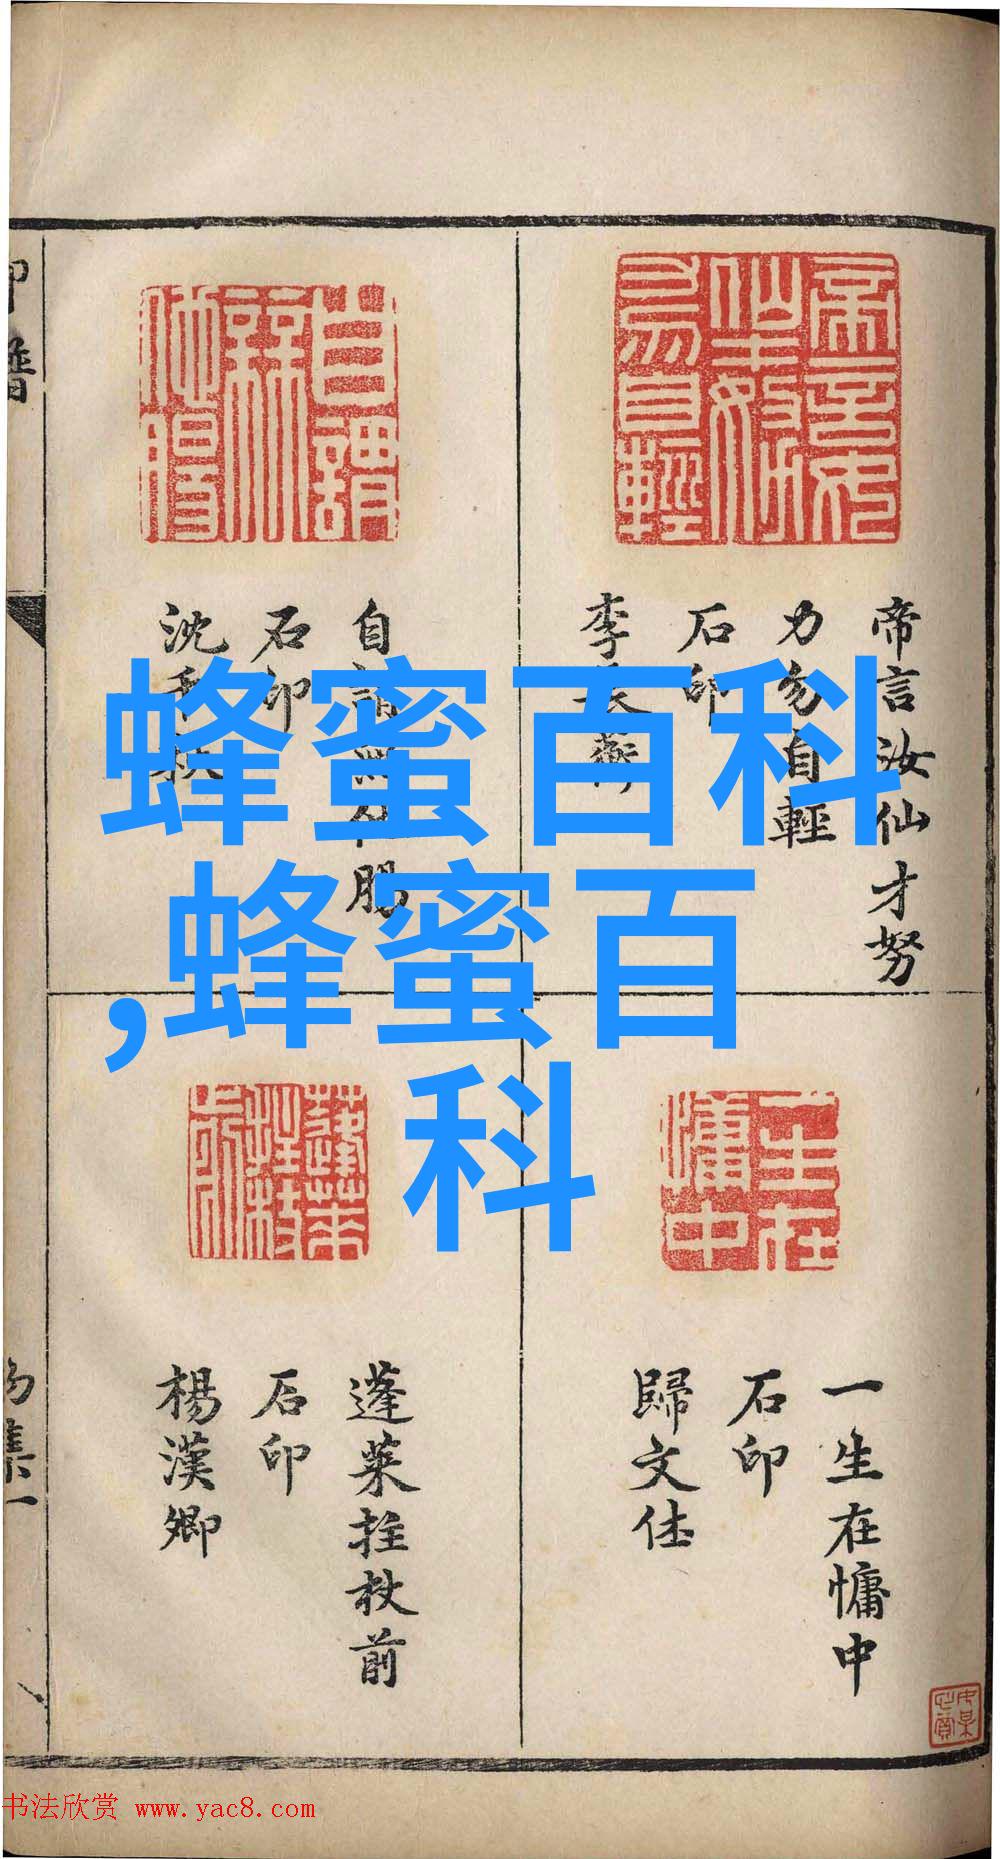 蜂蜜百科
,蜂蜜百
科
帝言汝仙才努
力勿自輕
石印
李
自
石印
沈
一生在慵中
石印
歸文休
蓬萊拄杖前
石印
楊漢卿
書法欣赏 www.yac8.com